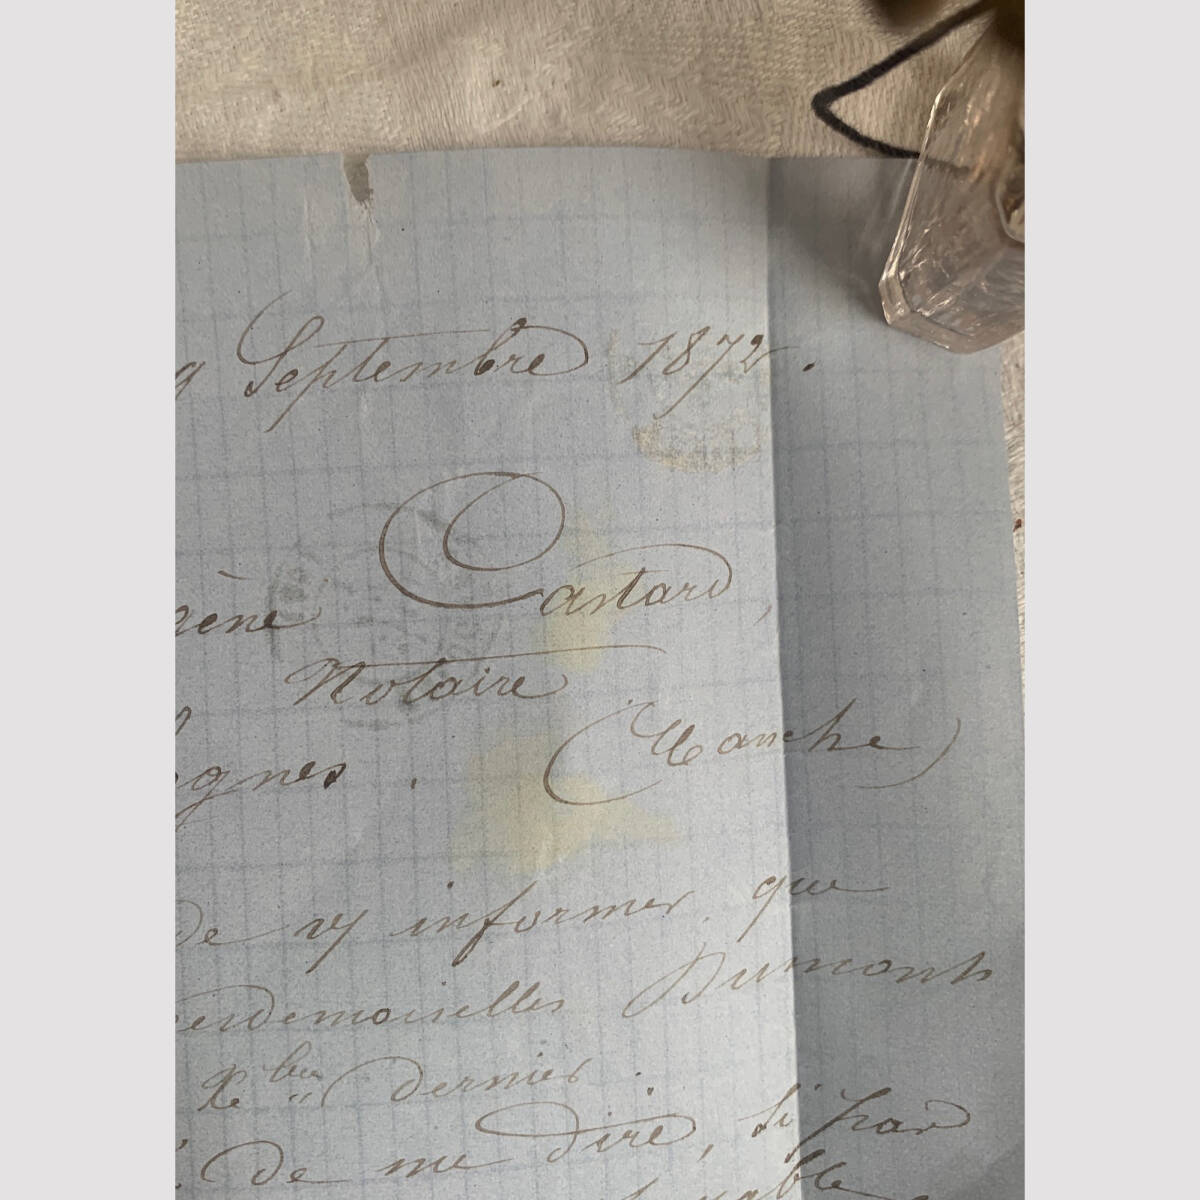 9 Septembre 1872.
gène Castard,
Notaire
gnes. (Manche)
de vs informer que
Mesdemoiselles Dumonts
Xbre dernier.
de me dire, si par